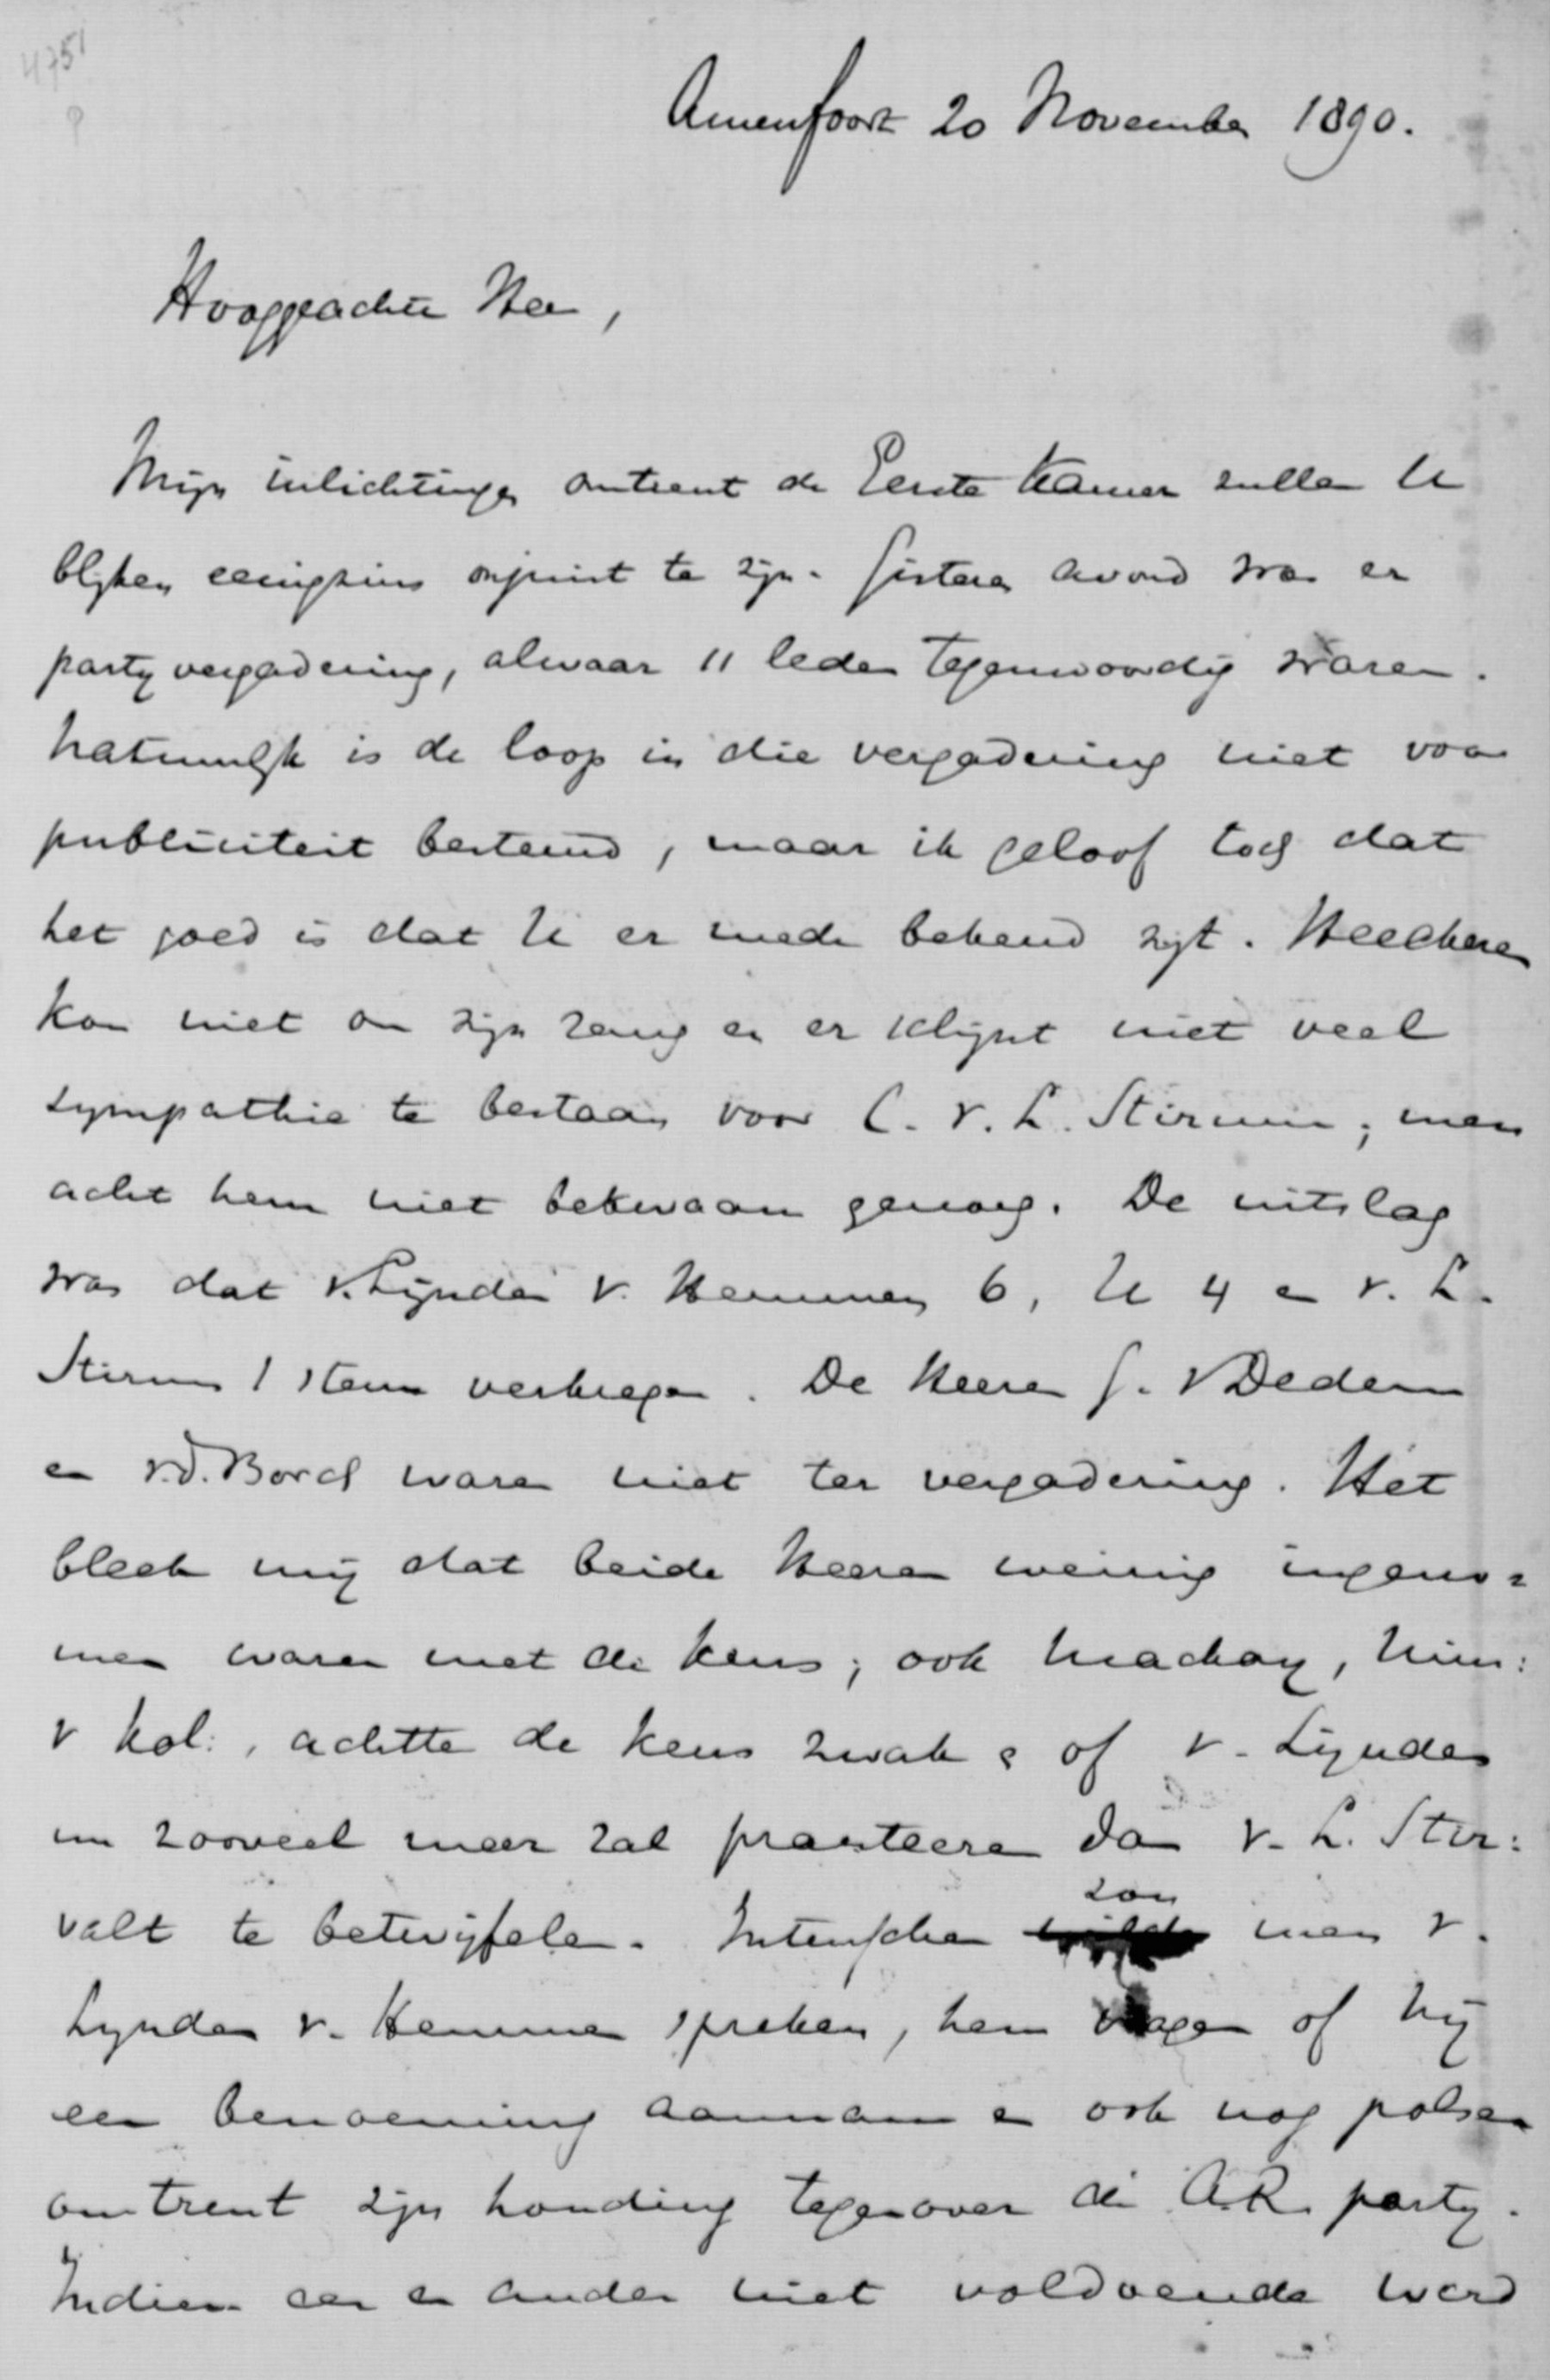 4751
Amersfoort 20 November 1890.
Hooggeachte Heer,
Mijn inlichtingen omtrent de Eerste Kamer zullen U
blyken eenigzins onjuist te zijn. Gisteren avond was er
party vergadering, alwaar 11 leden tegenwoordig waren.
Natuurlyk is de loop in die vergadering niet voor
publiciteit bestemd, maar ik geloof toch dat
het goed is dat U er mede bekend zyt. Heeckeren
kon niet on zijn zang en er schijnt niet veel
sympathie te bestaan voor C. v. L. Stirum; men
acht hem niet bekwaam genoeg. De uitslag
was dat v. Lynden v. Hemmen 6, U 4 en v. L.
Stirum 1 stem verkregen. De Heeren G. v Dedem
en v.d. Borch waren niet ter vergadering. Het
bleek mij dat beide Heeren weinig ingeno=
men waren met de keus; ook Mackay, Min:
v Kol:, achtte de keus zwak & of v. Lynden
nu zooveel meer zal praesteeren dan v. L. Stir:
valt te betwijfelen. Intusschen zou men v.
Lynden v. Hemmen spreken, hem vragen of hij
een benoeming aannam en ook nog polsen
omtrent zijn houding tegenover de A.R. party.
Indien een en ander niet voldoende werd